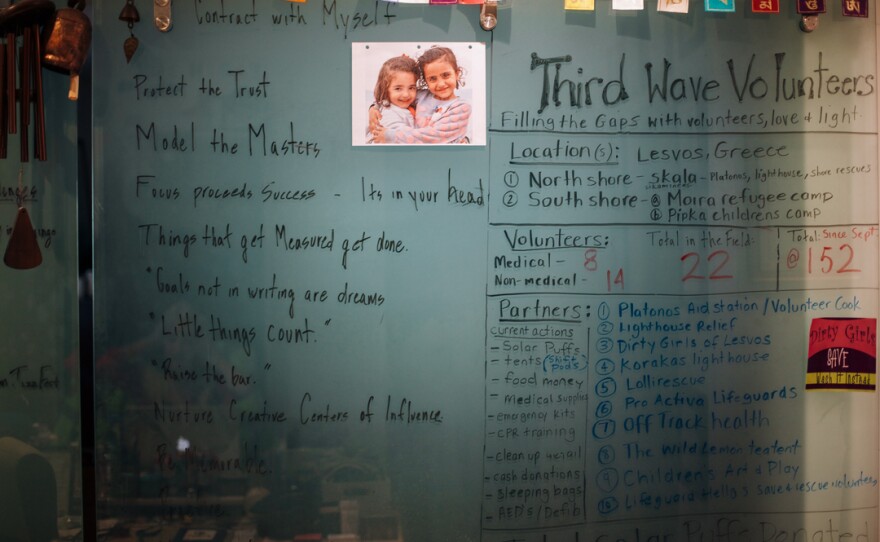 Contract with Myself
Protect the Trust
Model the Masters
Focus proceeds Success - Its in your head
Things that get Measured get done.
"Goals not in writing are dreams
"Little things count."
"Raise the bar."
Nurture Creative Centers of Influence
Be Memorable
Third Wave Volunteers
Filling the Gaps with volunteers, love & light
Location(s): Lesvos, Greece
① North shore - skala - Platonos, lighthouse, shore rescues
② South shore - ⓐ Moira refugee camp
ⓑ Pipka childrens camp
Volunteers:
Medical - 8
Non-medical - 14
Total in the Field:
22
Total: Since Sept
@ 152
Partners:
current actions
- Solar Puffs
- tents
- food money
- medical supplies
- emergency kits
- CPR training
- clean up
- cash donations
- sleeping bags
- AED's / Defib
① Platonos Aid station / Volunteer Cook
② Lighthouse Relief
③ Dirty Girls of Lesvos
④ Korakas lighthouse
⑤ Lollirescue
⑥ Pro Activa Lifeguards
⑦ Off Track health
⑧ The Wild Lemon teatent
⑨ Children's Art & Play
⑩ Lifeguard Hella's save & rescue volunteers
Dirty Girls
SAVE
Wash it Instead
Solar Puffs Donated